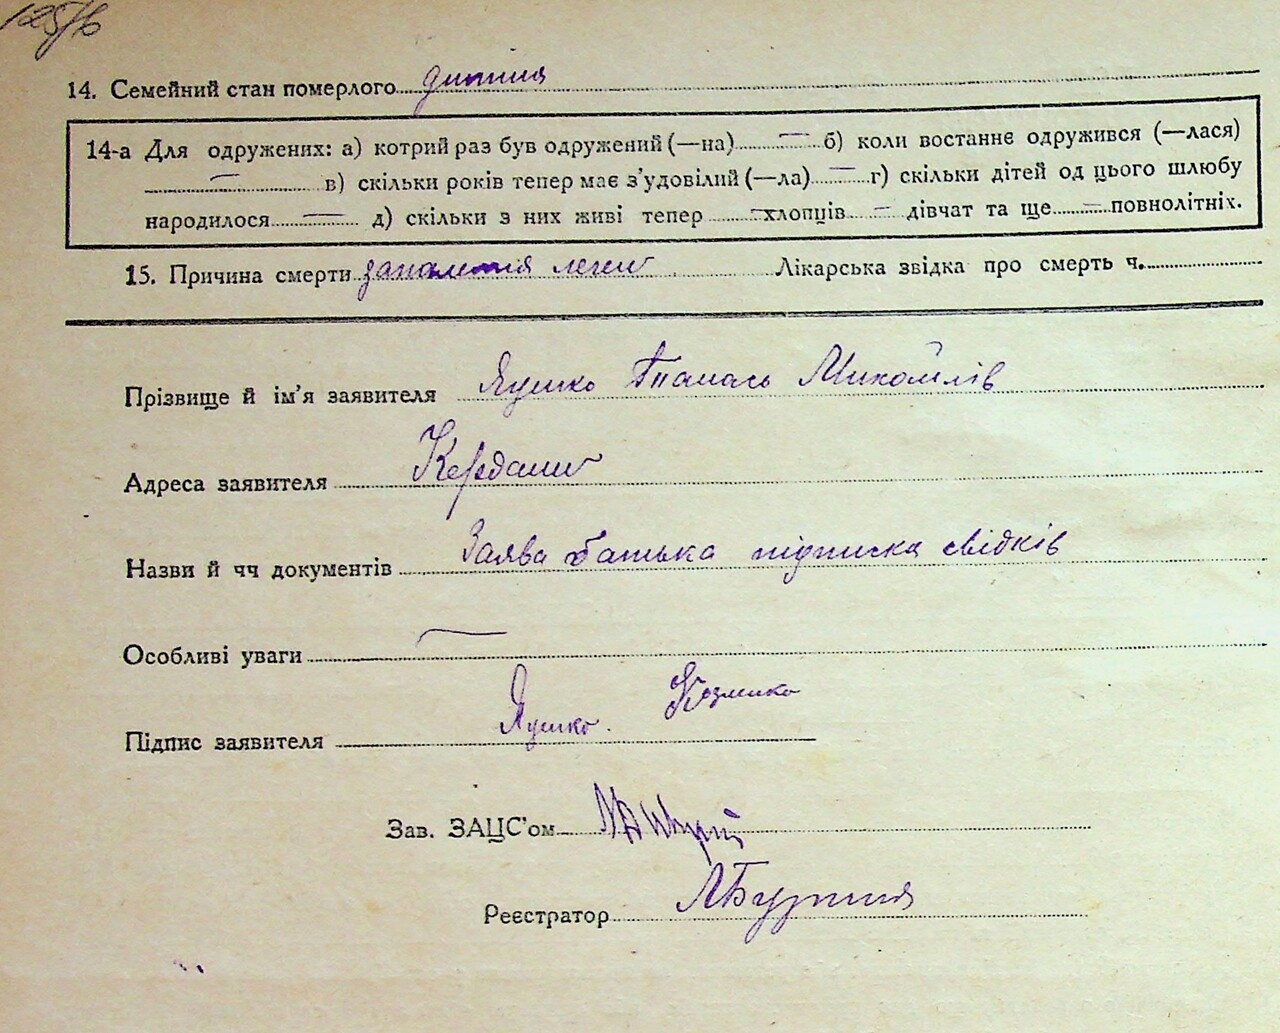 125/б
14. Семейний стан померлого дитина
14-а Для одружених: а) котрий раз був одружений (—на) — б) коли востаннє одружився (—лася)
— в) скільки років тепер має з'удовілий (—ла) — г) скільки дітей од цього шлюбу
народилося — д) скільки з них живі тепер — хлопців — дівчат та ще — повнолітніх.
15. Причина смерти запалення леген Лікарська звідка про смерть ч.
Прізвище й ім'я заявителя Яушко Панась Михайлів
Адреса заявителя Кердани
Назви й чч документів Заява батька підписка свідків
Особливі уваги —
Підпис заявителя Яушко
Зав. ЗАЦС'ом
Реєстратор